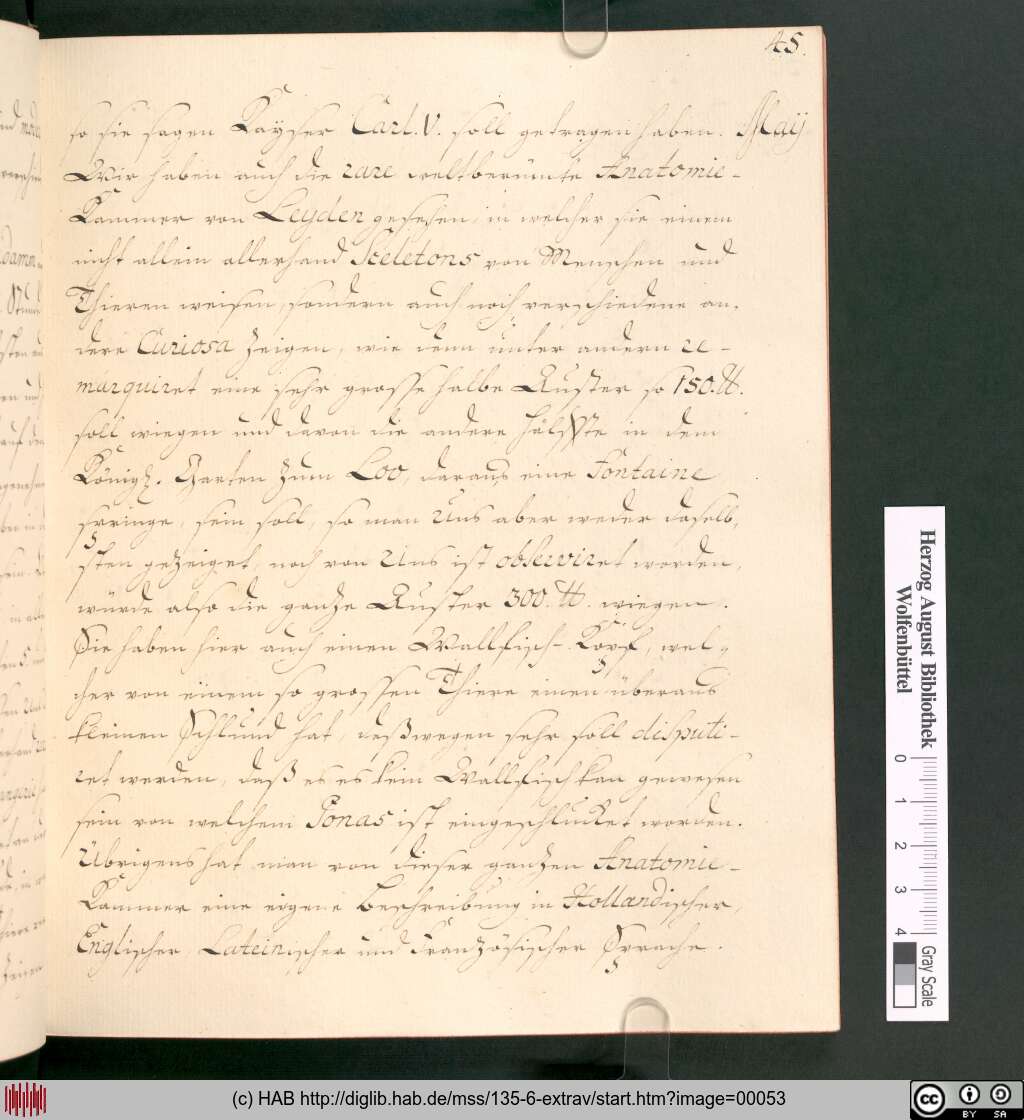 45.
so sie sagen Kayser Carl. V. soll getragen haben. May
Wir haben auch die rare weltberümte Anatomie-
Kammer von Leyden gesehen, in welcher sie einem
nicht allein allerhand Sceletons von Menschen und
Thieren weisen, sondern auch noch verschiedene an,
dere Curiosa zeigen, wie denn unter andern re-
marquiret eine sehr grosse halbe Auster so 150. ℔.
soll wiegen und davon die andere Hälffte in dem
Königl. Garten zum Loo, daraus eine Fontaine
springe, sein soll, so man Uns aber weder daselb,
sten gezeiget, noch von Uns ist observiret worden,
würde also die ganze Auster 300. ℔. wiegen.
Sie haben hier auch einen Wallfisch-Kopf, wel,
cher von einem so grossen Thiere einen überaus
kleinen Schlund hat, deßwegen sehr soll disputi-
ret werden, daß es es kein Wallfisch kan gewesen
sein von welchem Jonas ist eingeschlucket worden.
Übrigens hat man von dieser ganzen Anatomie-
Kammer eine eigene Beschreibung in Holländischer,
Englischer Lateinischer und Französischer Sprache.
Herzog August Bibliothek
Wolfenbüttel
0 1 2 3 4
Gray Scale
(c) HAB http://diglib.hab.de/mss/135-6-extrav/start.htm?image=00053
cc BY SA